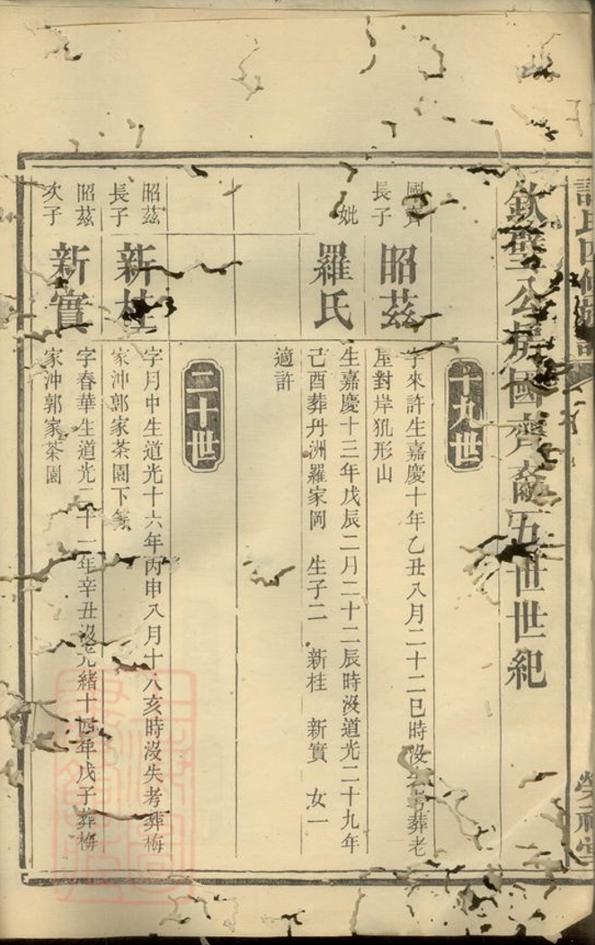 氏四修族譜
欽壁公房國齊裔五世世紀
十九世
國齊
長子
昭茲
字來許生嘉慶十年乙丑八月二十二巳時沒失考葬老
屋對岸犼形山
妣
羅氏
生嘉慶十三年戊辰二月二十二辰時沒道光二十九年
己酉葬丹洲羅家岡 生子二 新桂 新實 女一
適許
二十世
昭茲
長子
新桂
字月中生道光十六年丙申八月十八亥時沒失考葬梅
家沖郭家茶園下
昭茲
次子
新實
字春華生道光二十一年辛丑沒光緒十四年戊子葬梅
家沖郭家茶園